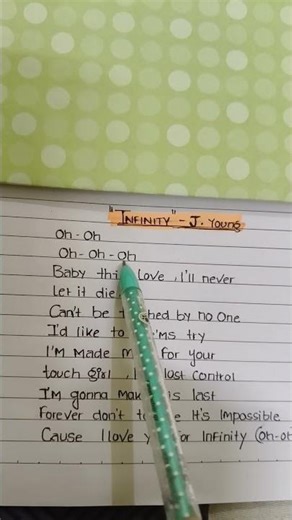 "INFINITY" - J. Young
Oh - Oh
Oh - Oh - Oh
Baby this love , I'll never
Let it die
Can't be by no One
I'd like to try
I'M Made for your
touch Girl , lost control
I'M gonna last
Forever don't It's Impossible
Cause I love Infinity (Oh-oh